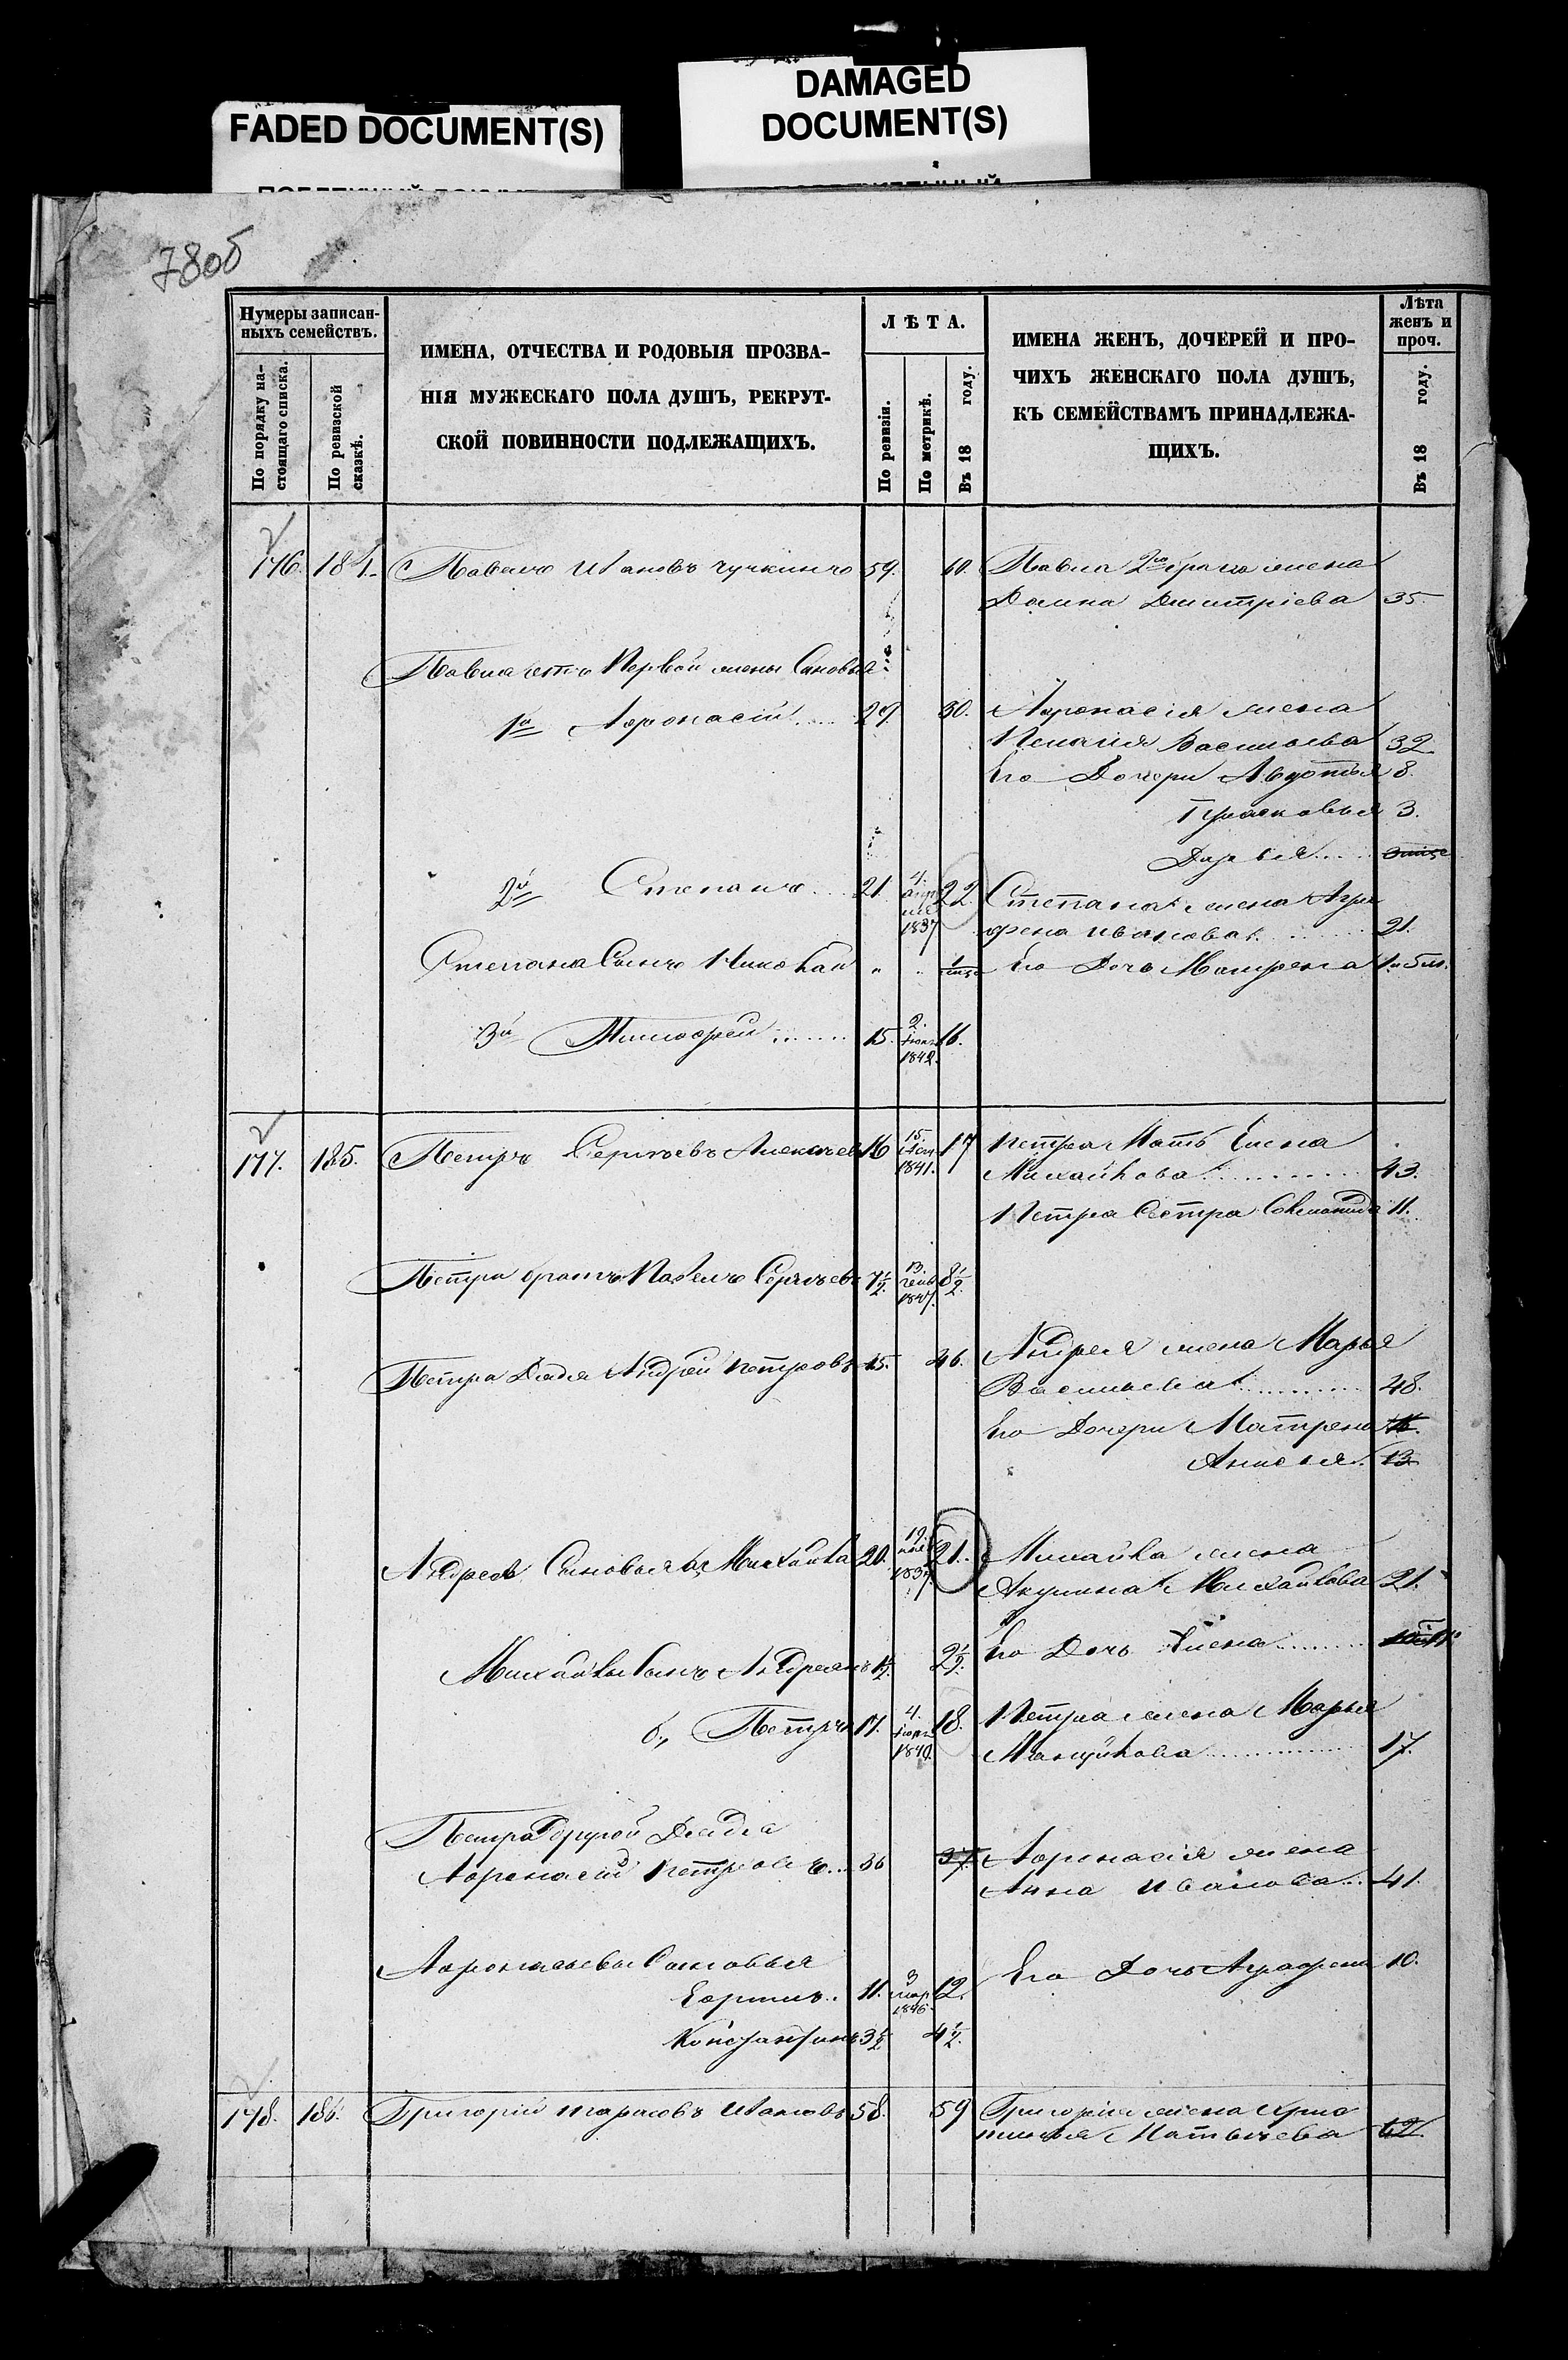 FADED DOCUMENT(S)
DAMAGED
DOCUMENT(S)
78об
Нумеры записан-
ныхъ семействъ.
По порядку на-
стоящаго списка.
По ревизской
сказкѣ.
ИМЕНА, ОТЧЕСТВА И РОДОВЫЯ ПРОЗВА-
НІЯ МУЖЕСКАГО ПОЛА ДУШЪ, РЕКРУТ-
СКОЙ ПОВИННОСТИ ПОДЛЕЖАЩИХЪ.
ЛѢТА.
По ревизіи.
По метрикѣ.
Въ 18 году.
ИМЕНА ЖЕНЪ, ДОЧЕРЕЙ И ПРО-
ЧИХЪ ЖЕНСКАГО ПОЛА ДУШЪ,
КЪ СЕМЕЙСТВАМЪ ПРИНАДЛЕЖА-
ЩИХЪ.
Лѣта
женъ и
проч.
Въ 18 году.
176. 184. Павелъ Ивановъ Чучкинъ 59. 60. Павла 2го брака жена
Домна Дмитріева 35.
Павла отъ Первой жены Сыновья:
1й Афонасій 29 30. Афонасія жена
Пелагія Васильева 32.
Его Дочери Авдотья 8.
Прасковья 3.
Дарья
2й Степанъ 21. 4. апр 1837 22. Степана жена Агра
фена Иванова 21.
Степана Сынъ Николай " " Его Дочь Матрена 1 и 5 м.
3й Тимофей 15. 2. 1842. 16.
177. 185. Петръ Сергѣевъ 16 15. 1841. 17 Петра Мать Елена
Михайлова 43.
Петра Сестра 11.
Петра братъ Павелъ Сергѣевъ 7½ 13. генв 1847. 8½
Петра Дядя Андрей Петровъ 45. 46. Андрея жена Марья
Васильева 48.
Его Дочери Матрена 16.
Анисья 13
Андрея Сыновья а, Михайла 20. 19. 1837. 21. Михайла жена
Акулина Михайлова 21.
Его Дочь Елена
Михайлы Сынъ Андреянъ 1½ 2½
б, Петръ 17. 4. 1840. 18. Петра жена Марья
17.
Петра Другой Дядя
Афонасій Петровъ 36 37. Афонасія жена
Анна Иванова 41.
Афонасьевы Сыновья
Ефимъ. 11. 3 мар 1846. 12. Его Дочь Аграфена 10.
Константинъ 3½ 4½
178. 186. Григорій Тарасовъ Ивановъ 58. 59 Григорія жена
Матвѣева 62.